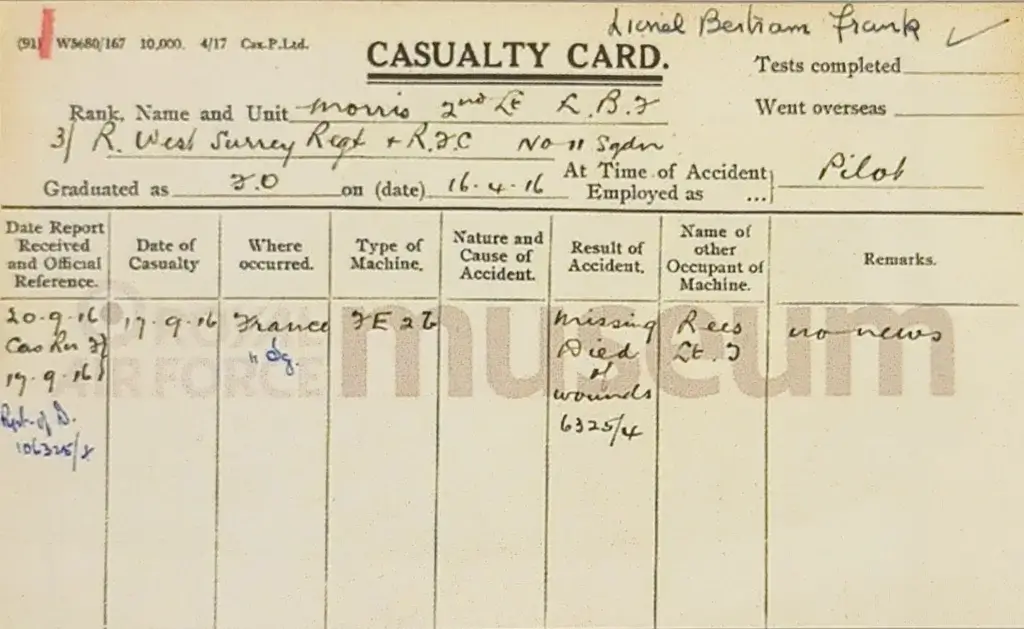 Lionel Bertram Frank
(91) W5680/167 10,000. 4/17 Cox.P.Ltd.
CASUALTY CARD.
Tests completed
Rank, Name and Unit Morris 2nd Lt L.B.F
Went overseas
3/ R. West Surrey Regt + R.F.C No 11 Sqdn
Graduated as F.O on (date) 16.4.16 At Time of Accident Employed as ... Pilot
Date Report Received and Official Reference.
Date of Casualty
Where occurred.
Type of Machine.
Nature and Cause of Accident.
Result of Accident.
Name of other Occupant of Machine.
Remarks.
20-9-16
Cas Rn F/
19.9.16
Rpt. of D.
106325/8
17.9.16
France
" dg.
FE 2b
Missing
Died
of
wounds
6325/4
Rees
Lt. F
no news
ROYAL
AIR FORCE
museum